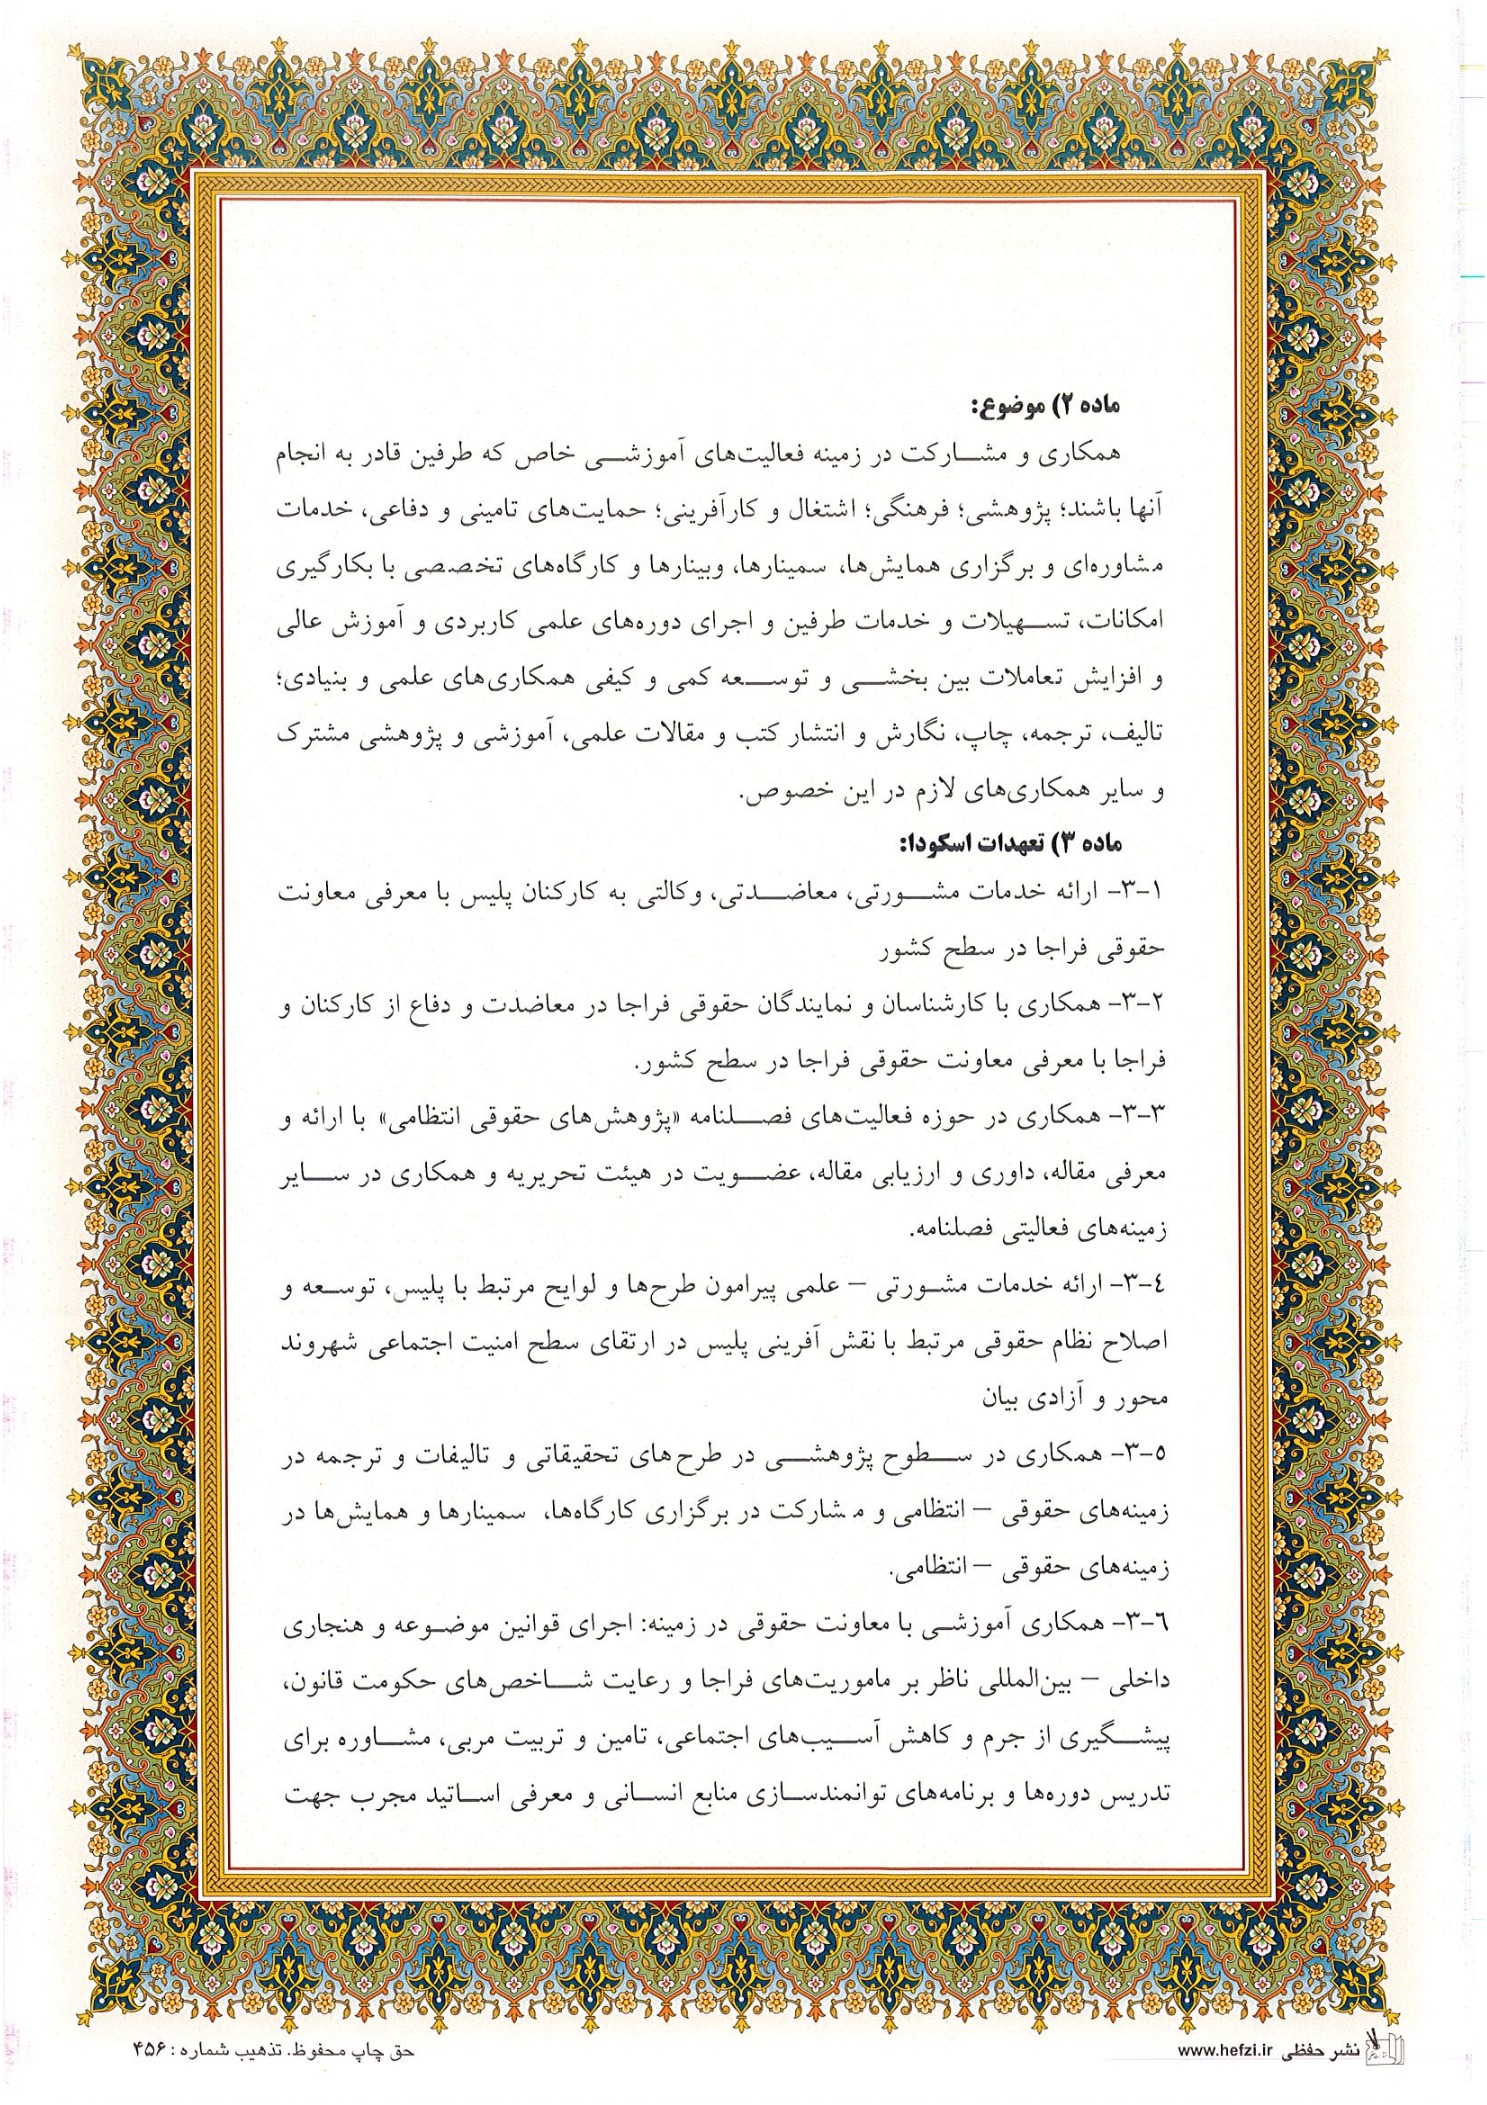 ماده ۲) موضوع:
همکاری و مشارکت در زمینه فعالیت‌های آموزشی خاص که طرفین قادر به انجام
آنها باشند؛ پژوهشی؛ فرهنگی؛ اشتغال و کارآفرینی؛ حمایت‌های تامینی و دفاعی، خدمات
مشاوره‌ای و برگزاری همایش‌ها، سمینارها، وبینارها و کارگاه‌های تخصصی با بکارگیری
امکانات، تسهیلات و خدمات طرفین و اجرای دوره‌های علمی کاربردی و آموزش عالی
و افزایش تعاملات بین بخشی و توسعه کمی و کیفی همکاری‌های علمی و بنیادی؛
تالیف، ترجمه، چاپ، نگارش و انتشار کتب و مقالات علمی، آموزشی و پژوهشی مشترک
و سایر همکاری‌های لازم در این خصوص.
ماده ۳) تعهدات اسکودا:
۳-۱- ارائه خدمات مشورتی، معاضدتی، وکالتی به کارکنان پلیس با معرفی معاونت
حقوقی فراجا در سطح کشور
۳-۲- همکاری با کارشناسان و نمایندگان حقوقی فراجا در معاضدت و دفاع از کارکنان و
فراجا با معرفی معاونت حقوقی فراجا در سطح کشور.
۳-۳- همکاری در حوزه فعالیت‌های فصلنامه «پژوهش‌های حقوقی انتظامی» با ارائه و
معرفی مقاله، داوری و ارزیابی مقاله، عضویت در هیئت تحریریه و همکاری در سایر
زمینه‌های فعالیتی فصلنامه.
۳-٤- ارائه خدمات مشورتی – علمی پیرامون طرح‌ها و لوایح مرتبط با پلیس، توسعه و
اصلاح نظام حقوقی مرتبط با نقش آفرینی پلیس در ارتقای سطح امنیت اجتماعی شهروند
محور و آزادی بیان
۳-٥- همکاری در سطوح پژوهشی در طرح‌های تحقیقاتی و تالیفات و ترجمه در
زمینه‌های حقوقی – انتظامی و مشارکت در برگزاری کارگاه‌ها، سمینارها و همایش‌ها در
زمینه‌های حقوقی – انتظامی.
۳-٦- همکاری آموزشی با معاونت حقوقی در زمینه: اجرای قوانین موضوعه و هنجاری
داخلی – بین‌المللی ناظر بر ماموریت‌های فراجا و رعایت شاخص‌های حکومت قانون،
پیشگیری از جرم و کاهش آسیب‌های اجتماعی، تامین و تربیت مربی، مشاوره برای
تدریس دوره‌ها و برنامه‌های توانمندسازی منابع انسانی و معرفی اساتید مجرب جهت
نشر حفظی www.hefzi.ir
حق چاپ محفوظ. تذهیب شماره : ۴۵۶